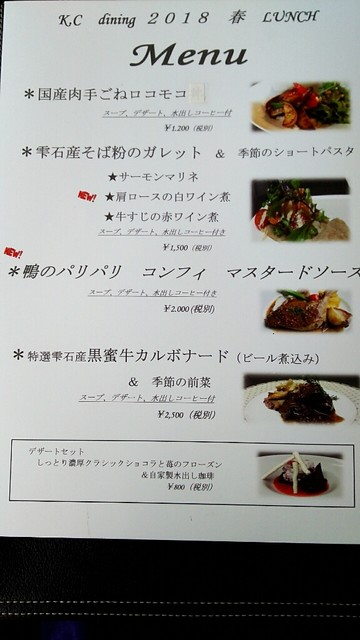 K.C dining 2018 春 LUNCH
Menu
*国産肉手ごねロコモコ
スープ、デザート、水出しコーヒー付
¥1,200 (税別)
*雫石産そば粉のガレット & 季節のショートパスタ
★サーモンマリネ
NEW! ★肩ロースの白ワイン煮
★牛すじの赤ワイン煮
スープ、デザート、水出しコーヒー付き
¥1,500 (税別)
NEW!
*鴨のパリパリ コンフィ マスタードソース
スープ、デザート、水出しコーヒー付き
¥2.000 (税別)
*特選雫石産黒蜜牛カルボナード (ビール煮込み)
& 季節の前菜
スープ、デザート、水出しコーヒー付
¥2,500 (税別)
デザートセット
しっとり濃厚クラシックショコラと苺のフローズン
&自家製水出し珈琲
¥800 (税別)